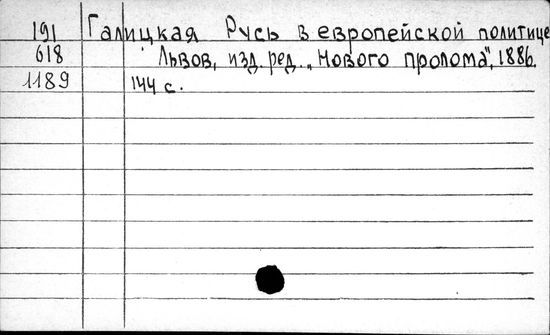 191 Галицкая Русь в европейской политице
618 Львов, изд. ред. „Нового пролома", 1886.
1189 144 с.